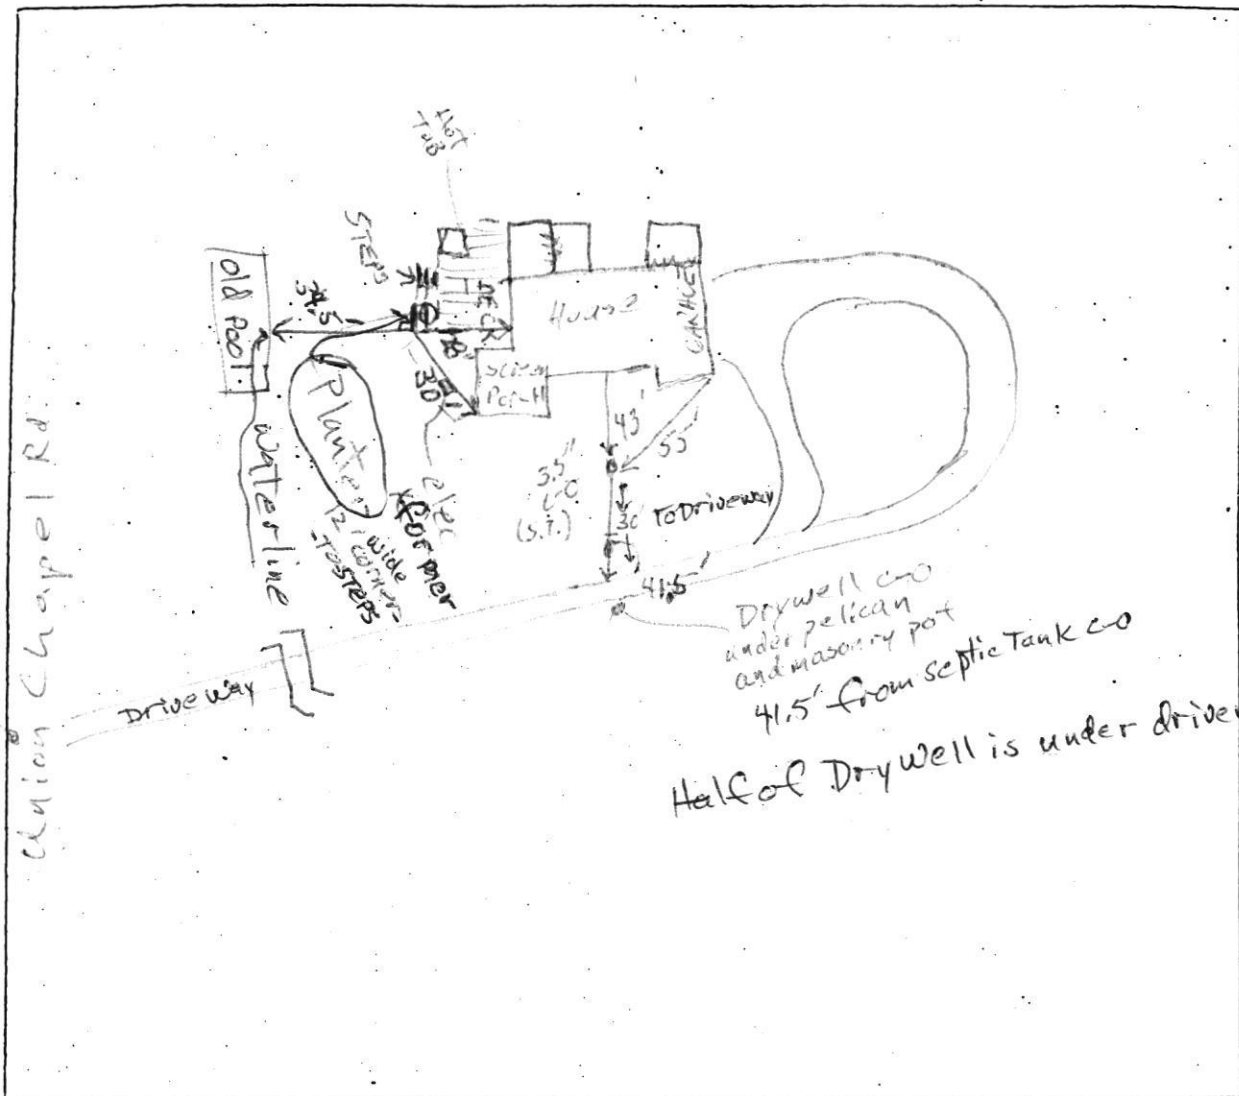 Hot
Tub
STEPS
old Pool
34.5'
DECK
House
GARAGE
Screen
Porch
30
43'
Planter
Waterline
elec
xformer
12' wide
corner
TO STEPS
3.5"
c-o
(S.T.)
30' To Driveway
41.5'
Drywell c-o
under pelican
and masonry pot
41.5' from septic Tank c-o
Half of Drywell is under drivew
Drive Way
Union Chapel Rd.